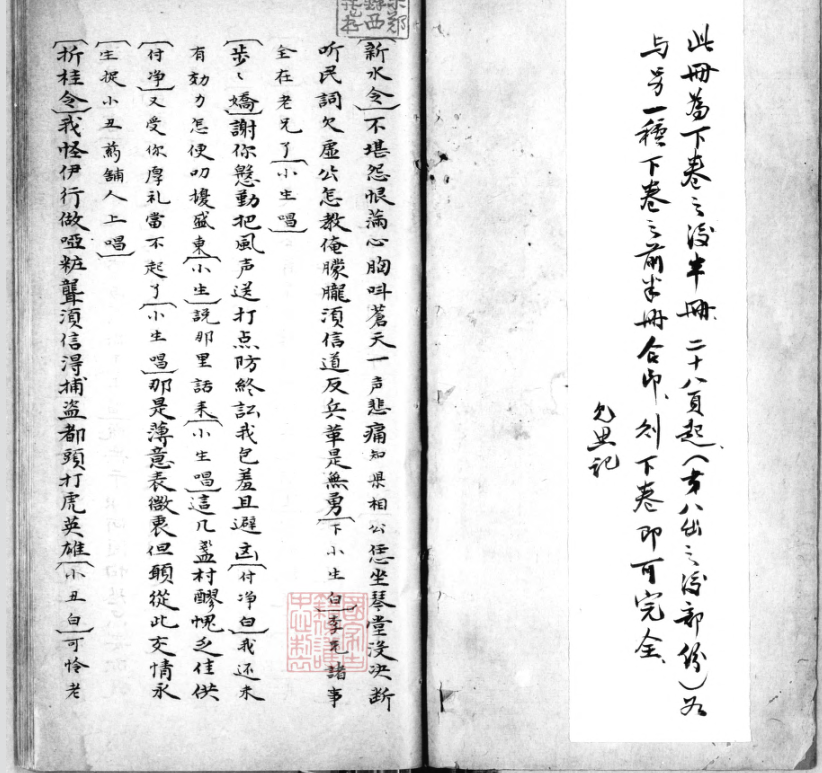 此冊為下卷之後半冊。二十八頁起（第八出之後部份）如
与另一種下卷之前半冊合印、則下卷即可完全、
記
〔新水令〕不堪怨恨滿心胸呌蒼天一声悲痛知県相公恁坐琴堂沒决断
听民詞欠虛公怎教俺朦朧湏信道反兵革是無勇〔下小生白〕李兄諸事
全在老兄了〔小生唱〕
〔步〻嬌〕謝你慇勤把風声送打点防終訟我包羞且避凶〔付净白〕我还未
有効力怎便叨擾盛東〔小生〕説那里話来〔小生唱〕這几盞村醪愧乏佳供
〔付净〕又受你厚礼當不起了〔小生唱〕那是薄意表微衷但願從此交情永
〔生捉小丑葯舖人上唱〕
〔折桂令〕我怪伊行做啞粧聾湏信淂捕盗都頭打虎英雄〔小丑白〕可怜老